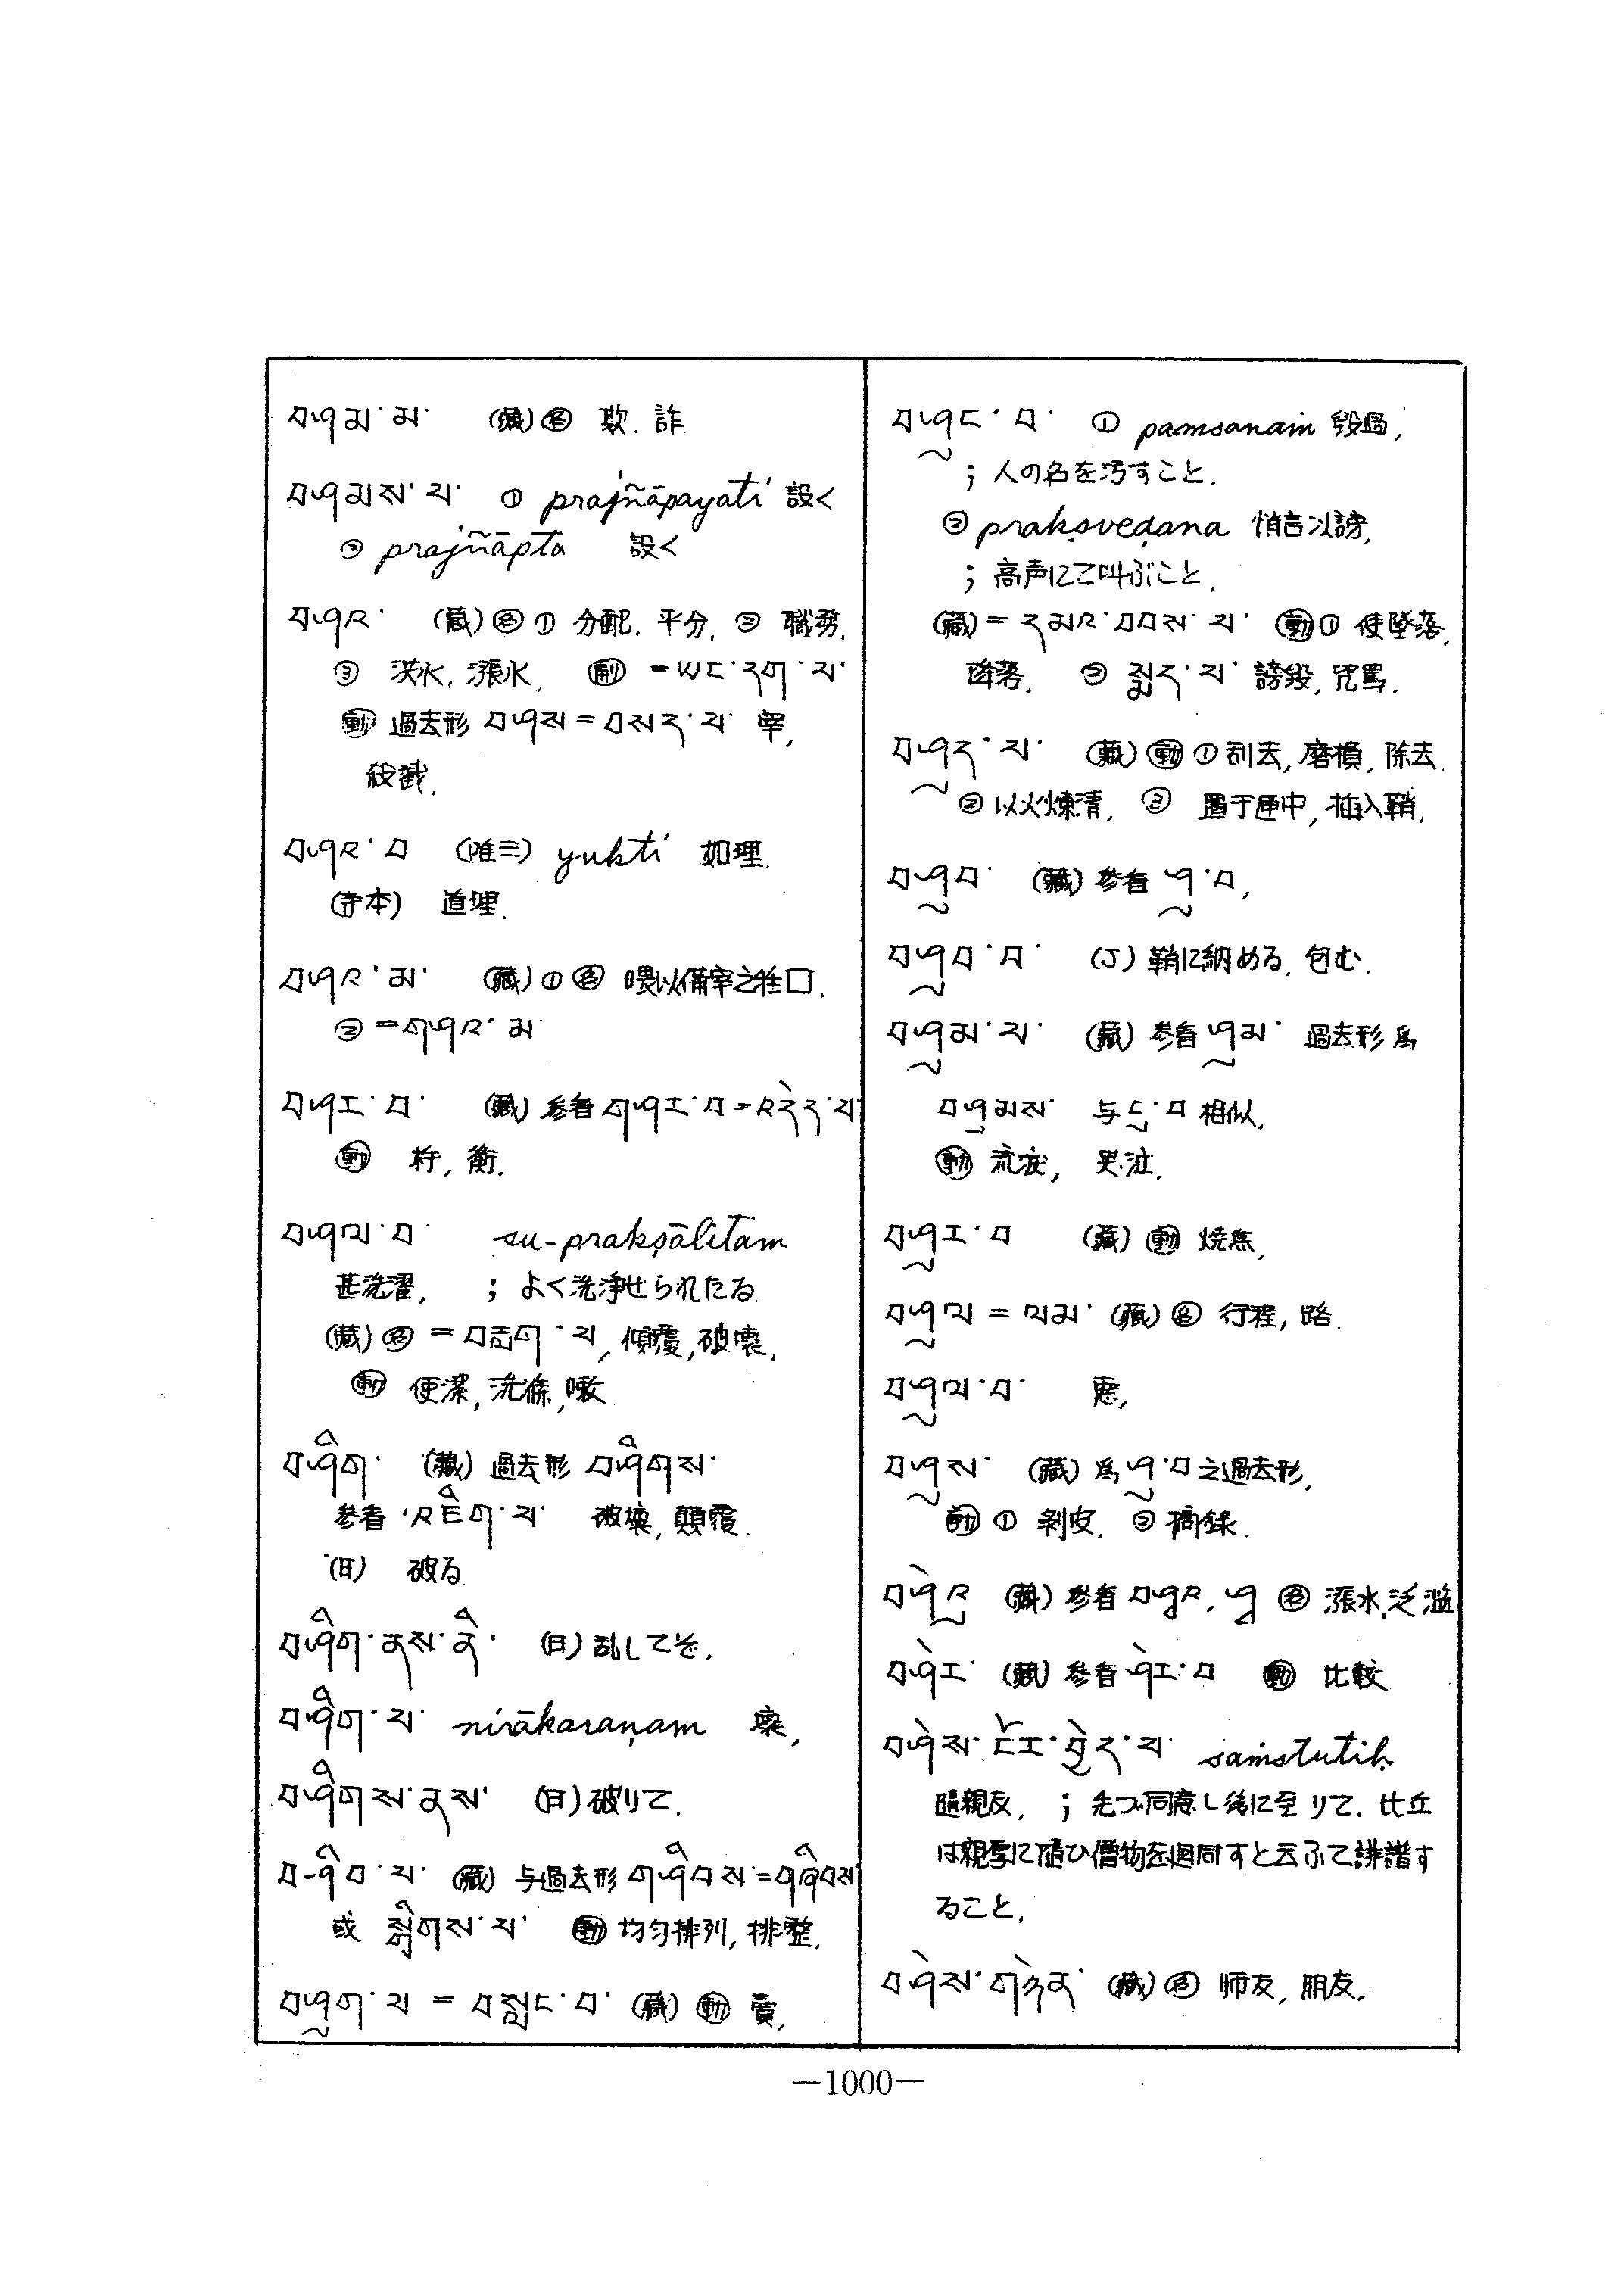 བཤམ་མ་ (藏)名 欺. 詐
བཤམས་པ་ ① prajñāpayati 設く
② prajñāpta 設く
བཤའ་ (藏)名① 分配. 平分, ② 職務.
③ 洪水, 漲水, 副 = ཡང་དག་པ་
動 過去形 བཤས = བསད་པ་ 宰,
殺戮.
བཤའ་བ (唯三) yukti 如理.
(寺本) 道理.
བཤའ་མ་ (藏)①名 喂以備宰之牲口.
② =གཤའ་མ
བཤར་བ་ (藏) 参看 གཤར་བ = འདེད་པ
動 秤, 衡.
བཤལ་བ་ su-prakṣālitam
甚洗濯, ; よく洗浄せられたる
(藏)名 = བཤིག་པ, 傾覆, 破壊,
動 使潔, 洗滌, 嗽
བཤིག་ (藏) 過去形 བཤིགས་
参看 འཇིག་པ་ 破壊, 顛覆.
(日) 破る
བཤིག་ནས་ནི་ (日) 乱してぞ.
བཤིག་པ་ nirākaraṇam 壊,
བཤིགས་ནས་ (日) 破りて.
བ-ཤིབ་པ་ (藏) 与過去形 གཤིབས = གཞིབས
或 སྒྲིགས་པ་ 動 均匀排列, 排整.
བཤུག་པ = བསླང་བ་ (藏) 動 賣,
བཤུང་བ་ ① pamsanaṁ 毀過,
; 人の名を汚すこと.
② prakṣveḍana 悄言以謗,
; 高声にて叫ぶこと.
(藏) = དམའ་བབས་པ་ 動① 使墜落,
降落, ② སྨད་པ་ 謗毀, 咒罵.
བཤུད་པ་ (藏) 動 ① 刮去, 磨損, 除去.
② 以火煉清, ③ 置于匣中, 插入鞘.
བཤུབ་ (藏) 参看 ཤུ་བ,
བཤུབ་བ་ (J) 鞘に納める. 包む.
བཤུམ་པ་ (藏) 参看 ཤུམ་ 過去形 為
བཤུམས་ 与 ངུ་བ 相似,
動 流淚, 哭泣.
བཤུར་བ (藏) 動 焼焦,
བཤུལ = ལམ་ (藏)名 行程, 路.
བཤུལ་བ་ 悪,
བཤུས་ (藏) 為 ཤུ་བ 之過去形,
動 ① 剥皮, ② 摘録.
བཤེའ (藏) 参看 བཤའ, ཤྭ 名 漲水, 泛濫
བཤེར་ (藏) 参看 ཤེར་བ 動 比較
བཤེས་ངོར་བྱེད་པ་ saṁstutiḥ
隨親友, ; 先づ同意し後に至りて. 比丘
は親厚に隨ひ僧物を廻向すと云ふて誹謗す
ること,
བཤེས་གཉེན་ (藏)名 师友, 朋友,
—1000—